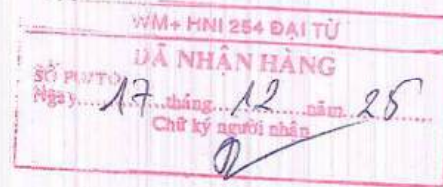 WM+ HNI 254 ĐẠI TỪ
ĐÃ NHẬN HÀNG
SỐ PO/TO
Ngày 17 tháng 12 năm 25
Chữ ký người nhận